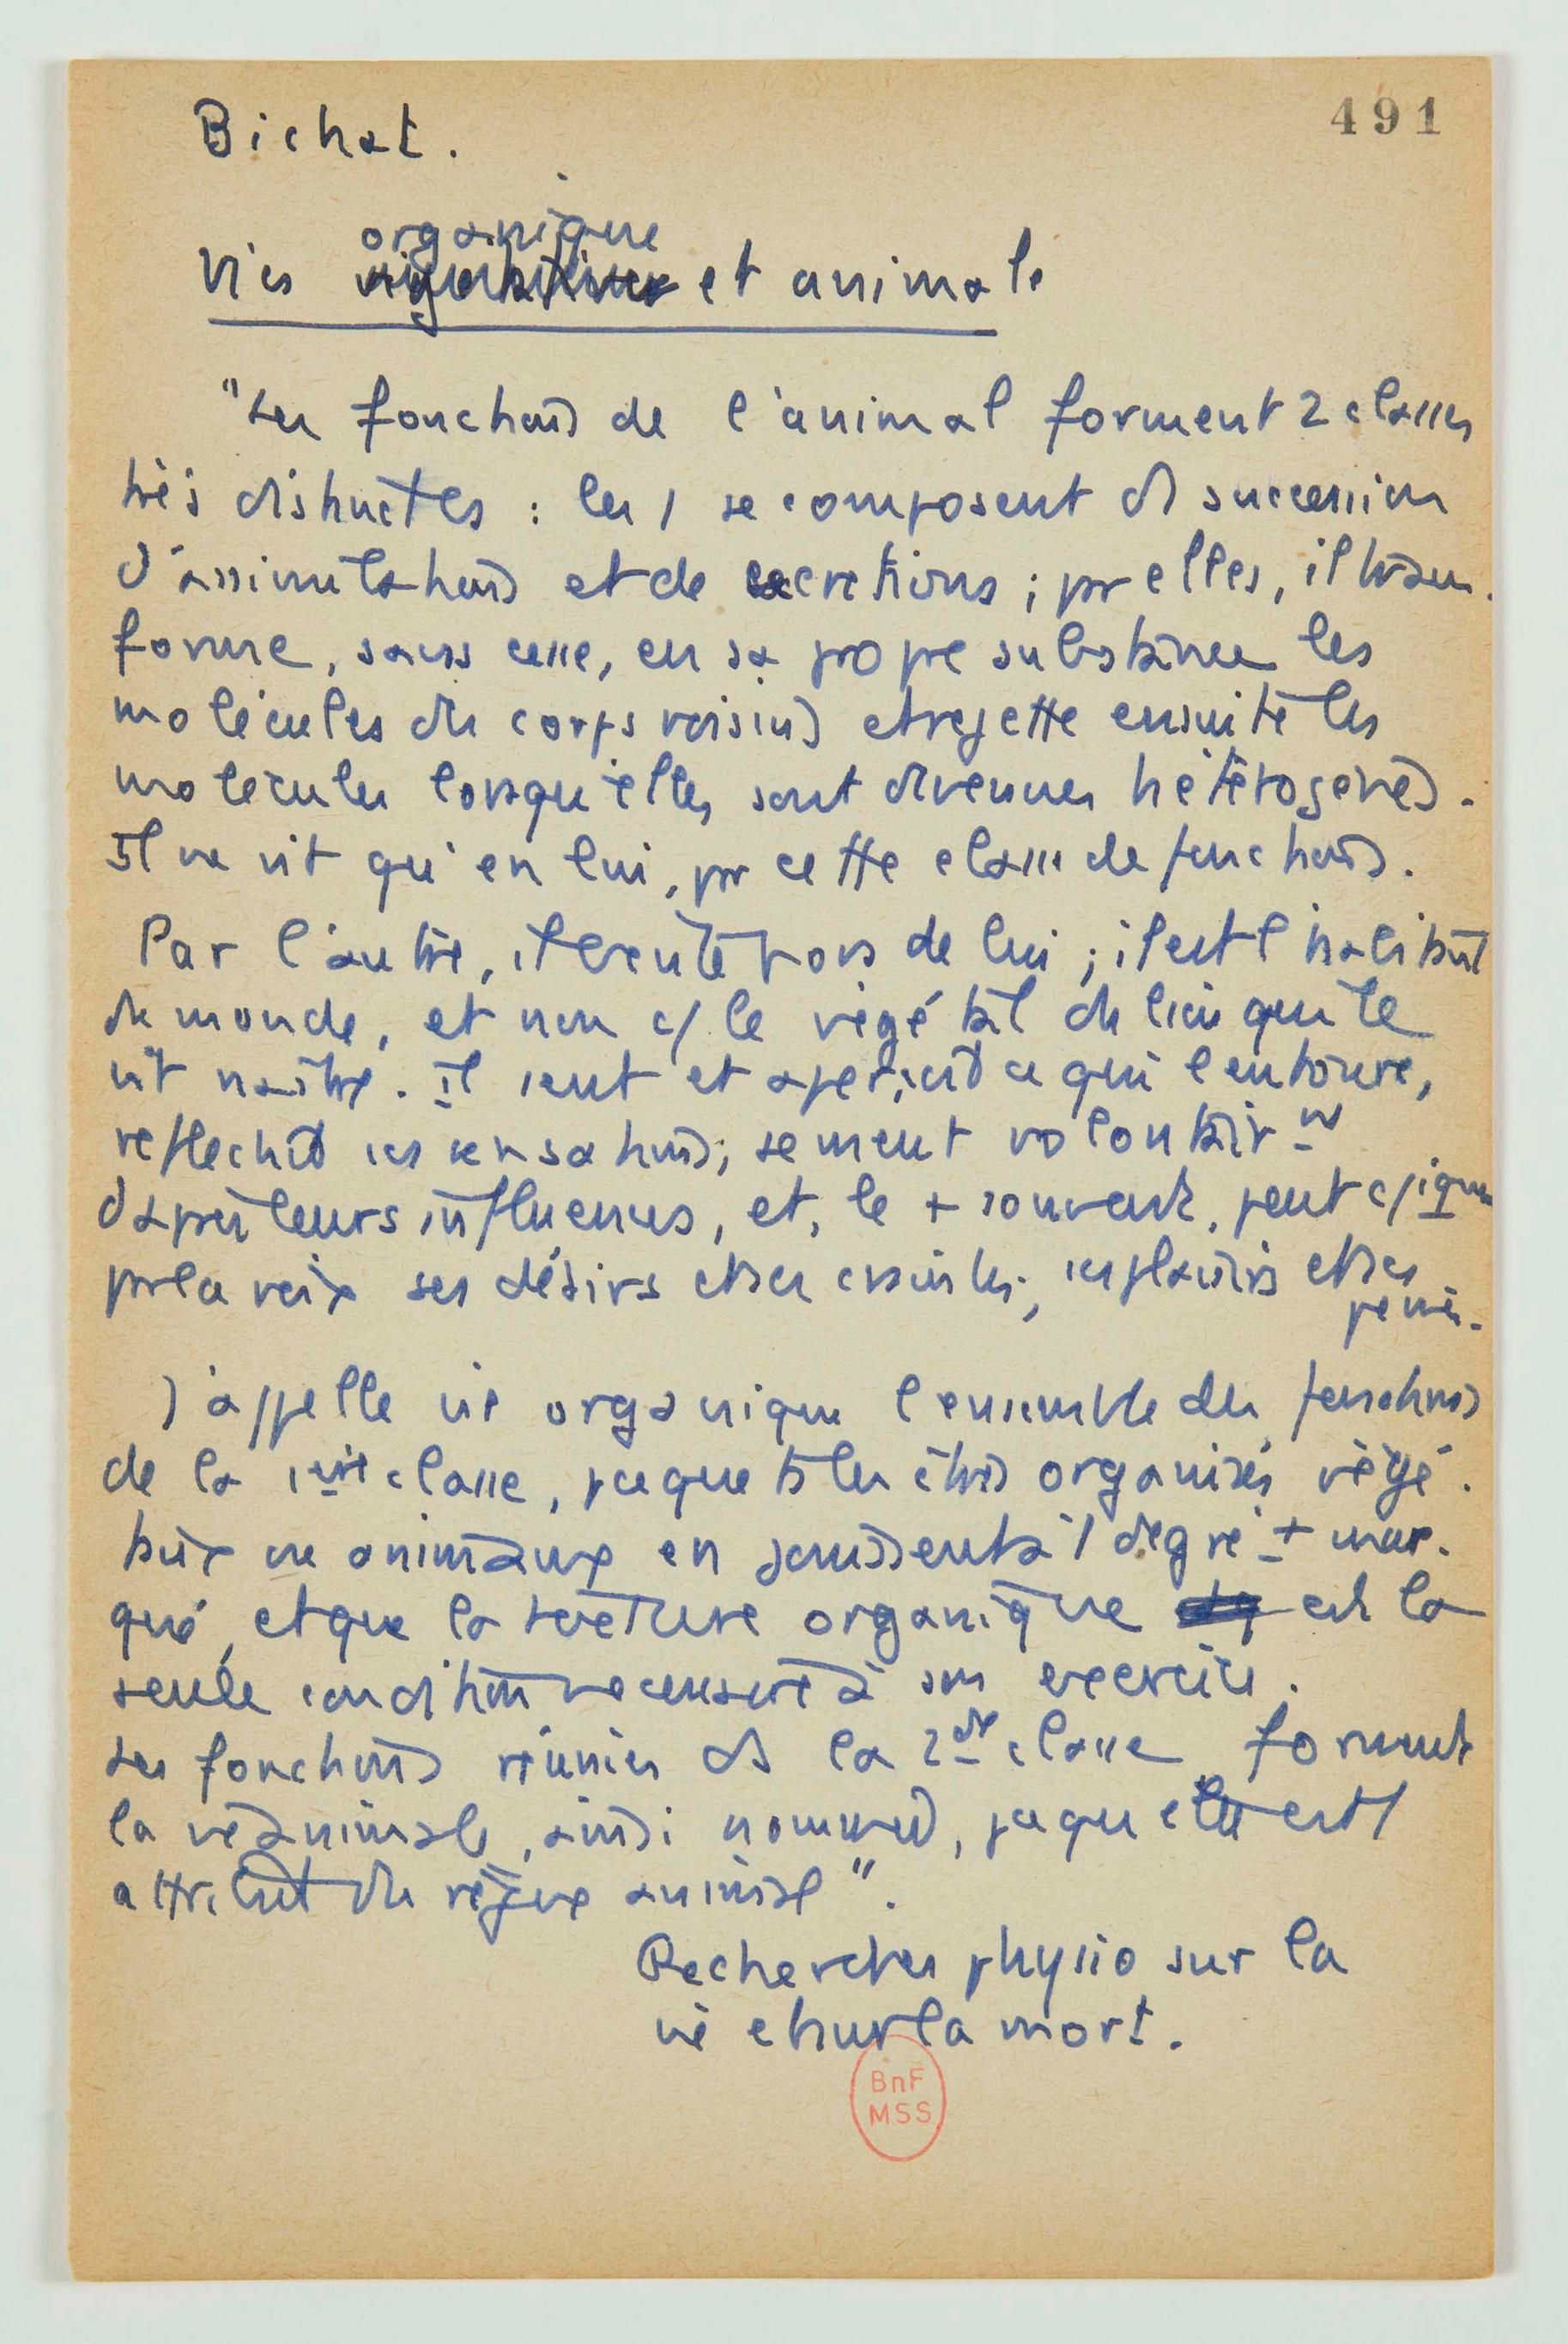 491
Bichat.
organique
Vies végétative et animale
"Les fonctions de l'animal forment 2 classes
très distinctes : les 1 se composent ds succession
d'assimilations et de secretions ; pr elles, il trans-
forme, sans cesse, en sa propre substance les
molécules des corps voisins et rejette ensuite les
molécules lorsqu'elles sont devenues hétérogènes.
Il ne vit qu'en lui, pr cette classe de fonctions.
Par l'autre, il existe hors de lui ; il est l'habitant
du monde, et non c/ le végétal du lieu qui le
vit naître. Il sent et aperçoit ce qui l'entoure,
reflechit ses sensations ; se meut volontairnt
d'après leurs influences, et, le + souvent, peut c/iquer
pr la voix ses désirs et ses craintes, ses plaisirs et ses
peines.
J'appelle vie organique l'ensemble des fonctions
de la 1ère classe, pceque ts les êtres organisés végé-
taux ou animaux en jouissent à 1 degré + mar-
qué, et que la texture organique est la
seule condition necessaire à son exercice.
Les fonctions réunies ds la 2de classe forment
la vie animale, ainsi nommée, pceque elle est l'
attribut du règne animal".
Recherches physio sur la
vie et sur la mort.
BnF
MSS